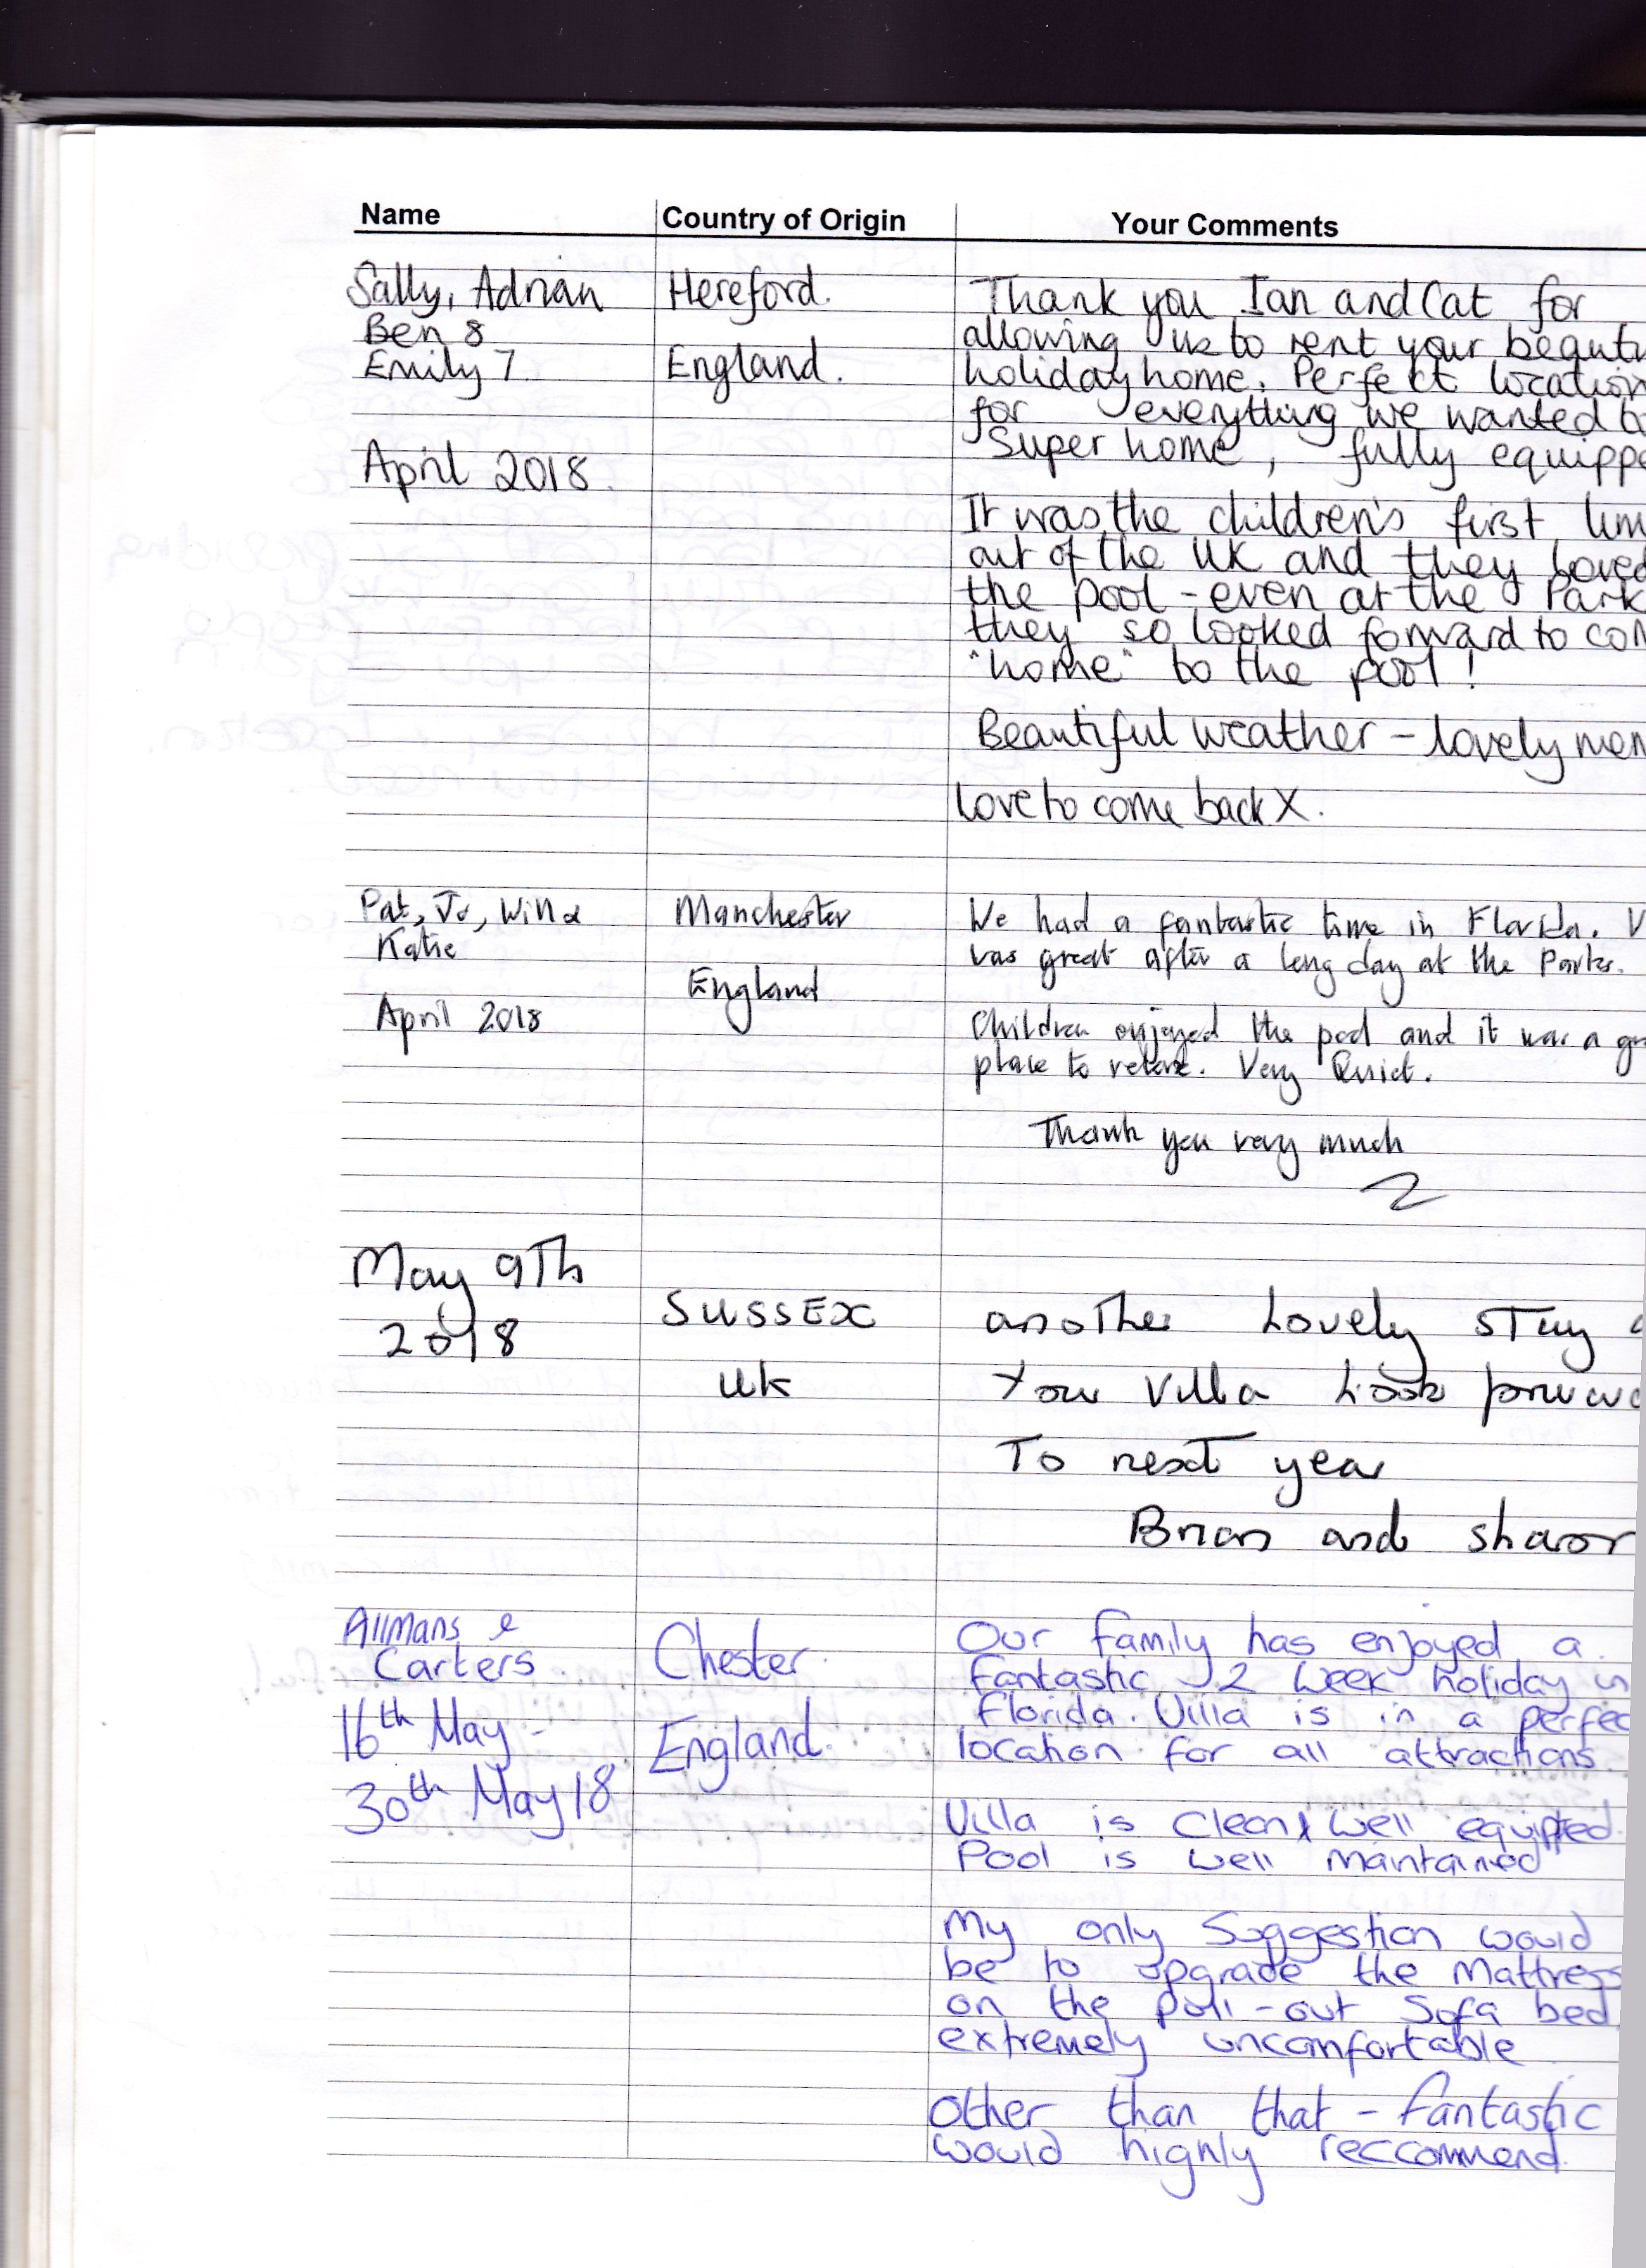 Name Country of Origin Your Comments
Sally, Adrian Hereford. Thank you Ian and Cat for
Ben 8 allowing us to rent your beauti
Emily 7. England. holiday home. Perfect location
for everything we wanted to
April 2018. Super home, fully equippe
It was the children's first
out of the UK and they loved
the pool - even at the Park
they so looked forward to com
"home" to the pool!
Beautiful weather - lovely mem
Love to come back X.
Pat, Jo, Will & Manchester We had a fantastic time in Florida. V
Katie was great after a long day at the Parks.
England
April 2018 Children enjoyed the pool and it was a gr
place to relax. Very Quiet.
Thank you very much
May 9Th
2018 SUSSEX another Lovely STay
UK Your Villa Look forwa
To next year
Brian and sharon
Allmans & Chester. Our family has enjoyed a
Carters. fantastic 2 week holiday in
16th May - England. Florida. Villa is in a perfec
location for all attractions
30th May 18
Villa is clean & well equipped.
Pool is well maintained
My only Suggestion would
be to upgrade the Mattress
on the pull-out Sofa bed,
extremely uncomfortable
Other than that - fantastic
would highly reccommend.